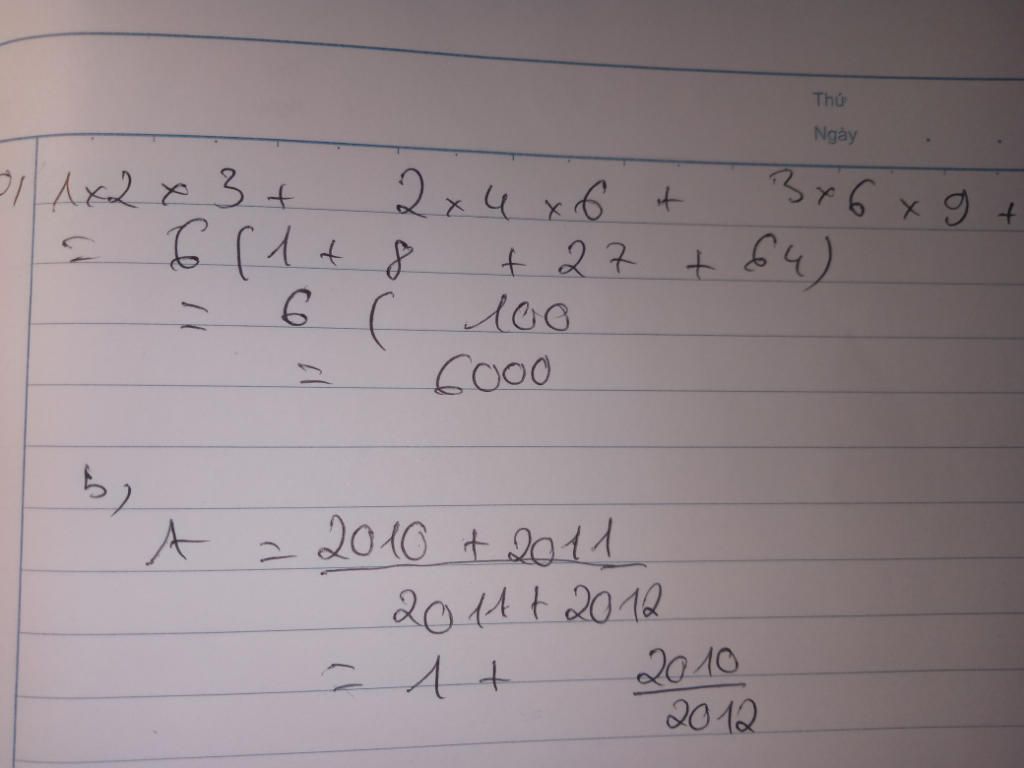 Thứ
Ngày
1×2 × 3 + 2 × 4 × 6 + 3×6 × 9 +
= 6 (1 + 8 + 27 + 64)
= 6 ( 100
= 6000
b,
A = 2010 + 2011
2011 + 2012
= 1 + 2010
2012